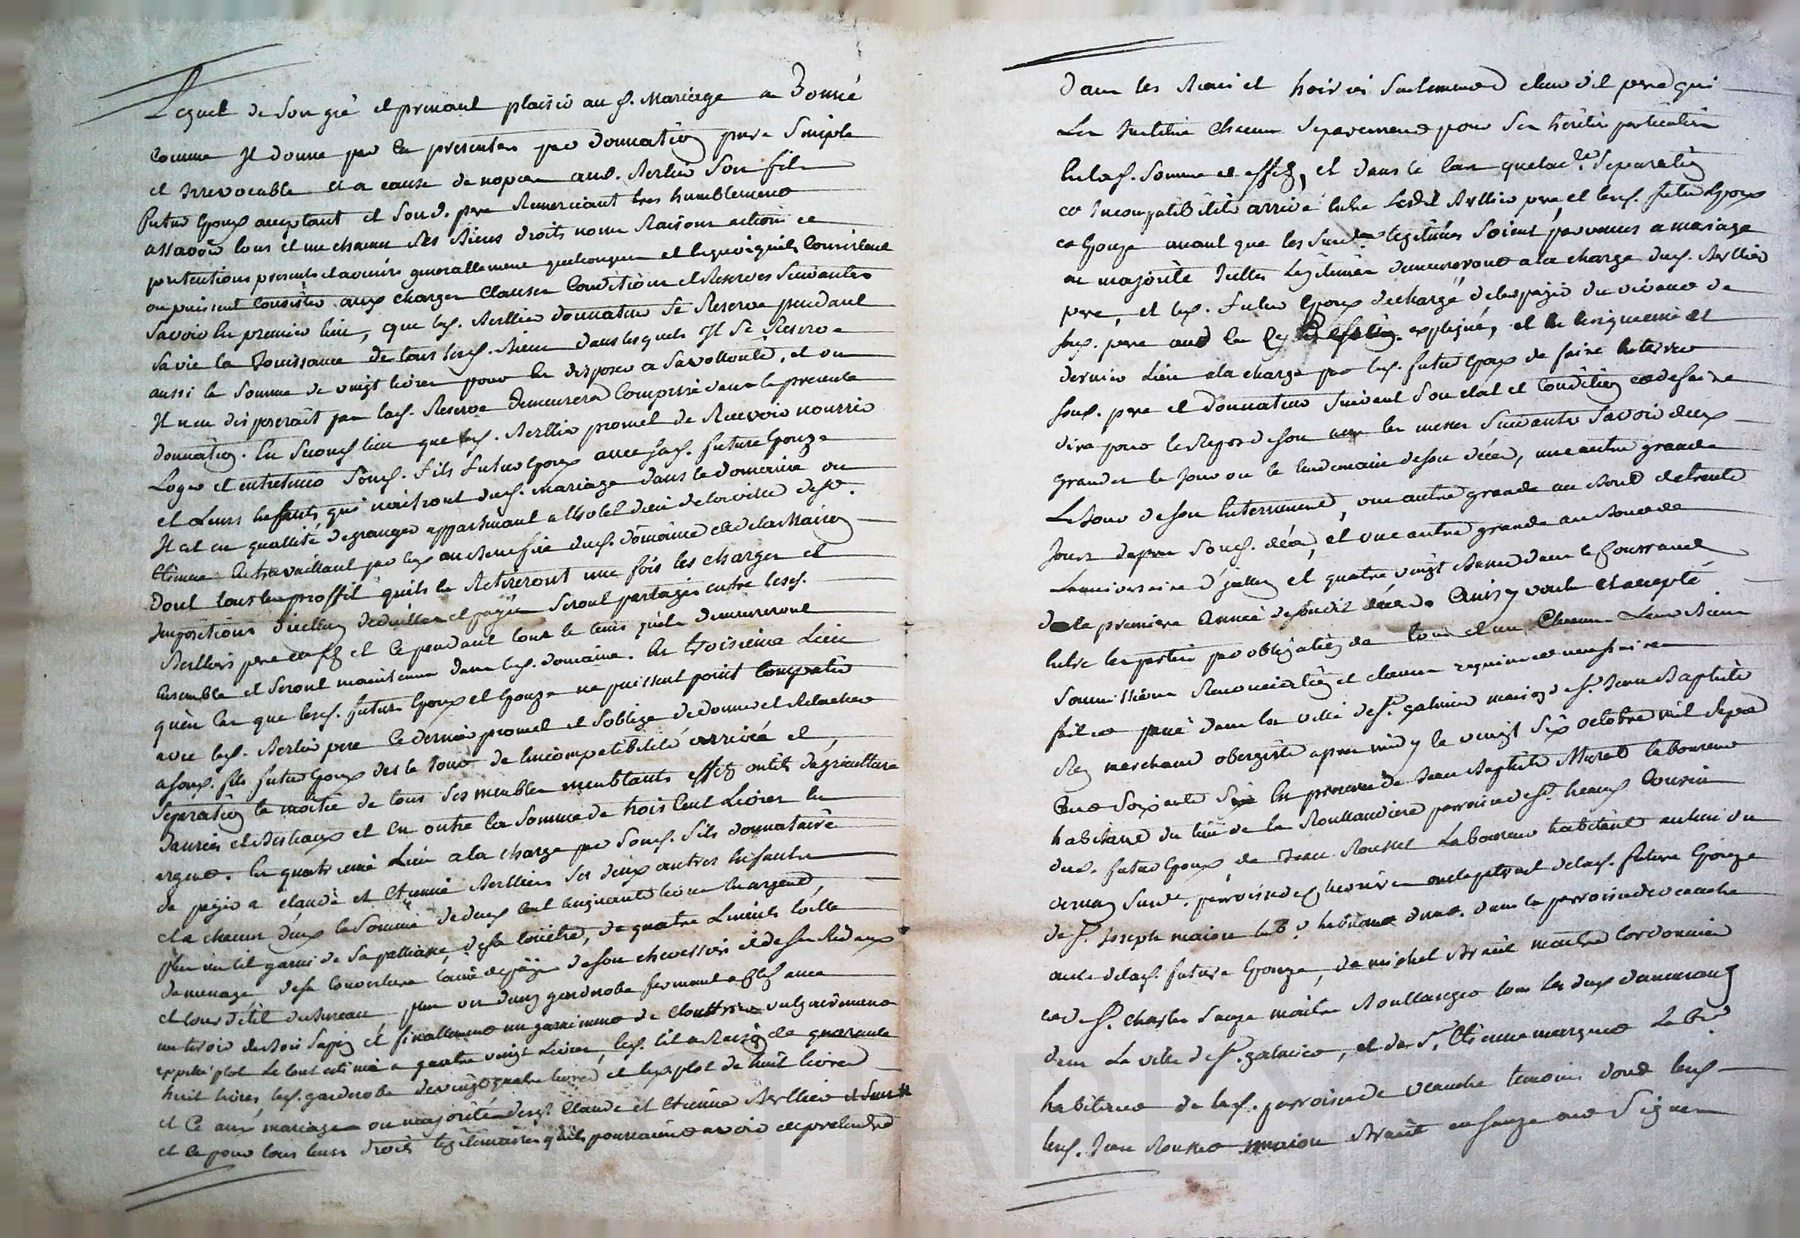 Lequel de son gré et prenant plaisir au d. Mariage a Donné
comme Il donne par les presentes par donnation pure Simple
et Irrevocable et a cause de nopces aud. Serlier Son fils
futur Epoux acceptant et Sond. pere Remerciant tres humblement
assavoir tous et un chacun Ses Biens droits noms Raisons actions et
pretentions presents et avenirs generallement quelconques et En quoi qu'ils Consistent
ou puissent Consister aux charges Clauses Conditions et Reserves Suivantes
Savoir En premier lieu, que led. Serllier donnateur Se Reserve pendant
Sa vie la Jouissance de tous Sesd. Biens dans lesquels Il Se Reserve
aussi la Somme de vingt livres pour En disposer a Sa vollonté, et ou
Il n'en disposerait pas lad. Reserve Demeurera Comprise dans la presente
donnation. En Second lieu que led. Serllier promet de Recevoir nourrir
Loger et entretenir Sond. fils futur Epoux avec Sad. future Epouze
et Leurs Enfants qui naitront dud. Mariage dans le domaine ou
Il est en quallité de granger appartenant a l'hotel dieu de la ville de St.
Etienne En travaillant par Eux au Benefice dud. domaine et de la Maison
Dont tous les proffits qu'ils En Retireront une fois les charges et
Impositions d'icelluy deduittes et payées Seront partagés entre lesd.
Serlliers pere et fils et Ce pendant tout le tems qu'ils demeureront
Ensemble et Seront maintenus dans led. domaine. En troisieme Lieu
qu'en Cas que lesd. futurs Epoux et Epouze ne puissent point Compatir
avec led. Serlier pere Ce dernier promet et S'oblige de donner et Relacher
a Sond. fils futur Epoux des le Jour de l'incompatibilité arrivée et
Separation la moitié de tous Ses meubles meublants effets outils d'agriculture
Danrées et Bestiaux et En outre la Somme de trois Cent Livres En
argent. En quatrieme Lieu a la charge par Sond. fils donnataire
de payer a claude et Etienne Serlliers Ses deux autres Enfants
et a chacun d'eux la Somme de deux Cent Cinquante livres En argent,
plus un lit garni de Sa palliasse, de Sa Coitre, de quatre Linceuls toille
de menage de Sa Couverture laine de païs de Son chevessier et de Ses Rideaux
et tour de lit de Bureau plus une garderobe fermant a Clef avec
un tiroir de Bois Sapin et finallement un garniment de Clouttrie vulgairement
appellé plot Le tout estimé a quatre vingt Livres, led. lit a Raison de quarante
huit livres lad. garderobe de vingt quatre livres et led. plot de huit livres
et Ce aux mariages ou majorités desd. Claude et Etienne Serllier
et Ce pour tous leurs Droits legitimaires qu'ils pourraient avoir et pretendre
Dans les Biens et hoiries Seulement dud. pere qui
Les Institue Chacun Separement pour Ses heritiers particuliers
En lad. Somme et effets, et dans le Cas que lad.te Separation
et Incompatibilité arrive Entre Ledit Serllier pere et lesd. futurs Epoux
et Epouze avant que lesd. legitimes Soient parvenus a mariage
ou majorité Icelles Legitimes demeureront a la charge dud. Serllier
pere, et led. futur Epoux dechargé de les payer du vivant de
Sond. pere expliqué, et En Cinquieme et
dernier Lieu a la charge par led. futur Epoux de faire Enterrer
Sond. pere et donnateur Suivant Son Etat et Condition et de faire
dire pour le Repos de Son ame les messes Suivantes Savoir deux
grandes le Jour ou le lendemain de Son décès, une autre grande
Le Jour de Son Enterrement, une autre grande au Bout de trente
Jours depuis Sond. décès, et une autre grande au Bout de
L'anniversaire d'Icelluy et quatre vingt Basses dans le Courrant
de la premiere année de Sondit décès Ainsy voulu et accepté
Entre les parties par obligation de tous et un Chacun Leurs Biens
Soumissions Renonciation et clauses requises et necessaires
fait et passé dans la ville de St. galmier maison de Sr. Jean Baptiste
Rey marchand obergiste apres midy le vingt Six octobre mil Sept
Cent Soixante Six En presence de Jean Baptiste Murat laboureur
habitant du lieu de la Roullandiere parroisse de St. heand Cousin
dud. futur Epoux, de Jean Rousset Laboureur habitant au lieu du
oncle paternel de lad. future Epouze
de Sr. Joseph maison habitant dans la parroisse de veauche
oncle de lad. future Epouze, de michel Brait maitre Cordonnier
et de Sr. Charles Sauze maitre Boullanger tous les deux demeurants
dans La ville de St. galmier, et de Sr. Etienne marquet
habitant de lad. parroisse de veauche temoins dont lesd.
lesd. Jean Rousset maison Brait Sauze ont Signé